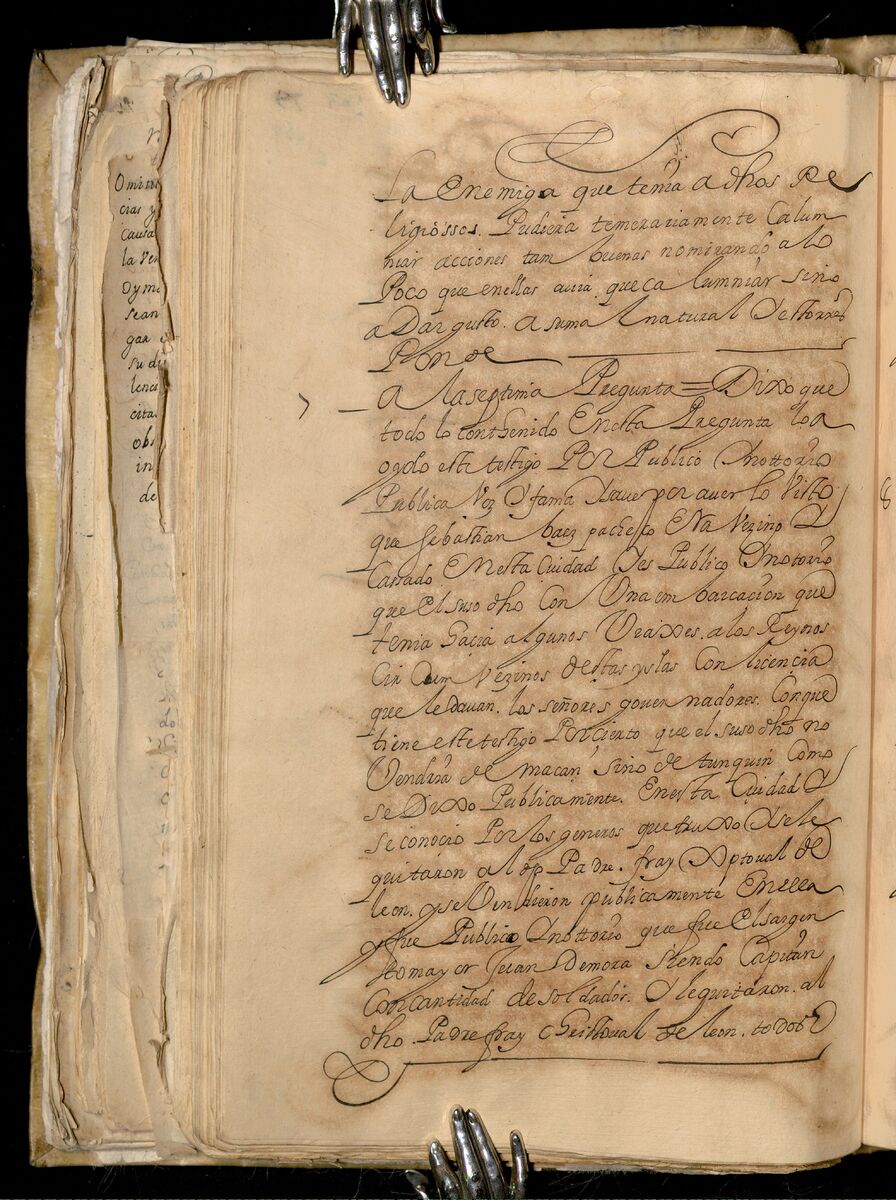 Omi
cias y
Causa
la Ven
Oyme
sean
gar
su di
lenci
cita
obs
in
de
La Enemiga que tenia a dhos Re
ligiossos. Pudiera temerariamente Calum
niar acciones tam buenas no mirando a lo
Poco que en ellas auia que ca lumniar sino
a Dar gusto. a su mal natural Yestorres
Ponde
7 A la septima Pregunta = Dixo que
todo lo conthenido En esta Pregunta lo a
oydo este testigo Por Publico Y nottorio
Publica Voz Y fama Y saue por auer lo Visto
que sebastian baez pacheco Era Vezino Y
Cassado En esta Ciudad Yes Publico Y notorio
que El suso dho Con Vna em barcacion que
tenia hacia algunos Viaxes. a los Reynos
Cir Cum Vezinos de estas yslas Con licencia
que le dauan. los señores gouer nadores. Conque
tiene este testigo Por Cierto que el suso dho no
Vendria de macan, sino de tunquin Como
se Dixo Publicamente. En esta Ciudad Y
se conocio Por los generos que truxo Y se le
quitaron al dho Padre. fray Xptoual de
leon. y se Vendieron publicamente En ella
y fue Publico Y nottorio que fue El sargen
to mayor Juan De mora siendo Capitan
Con cantidad de soldados. Y le quitaron. al
dho. Padre fray Christoual de leon. todos